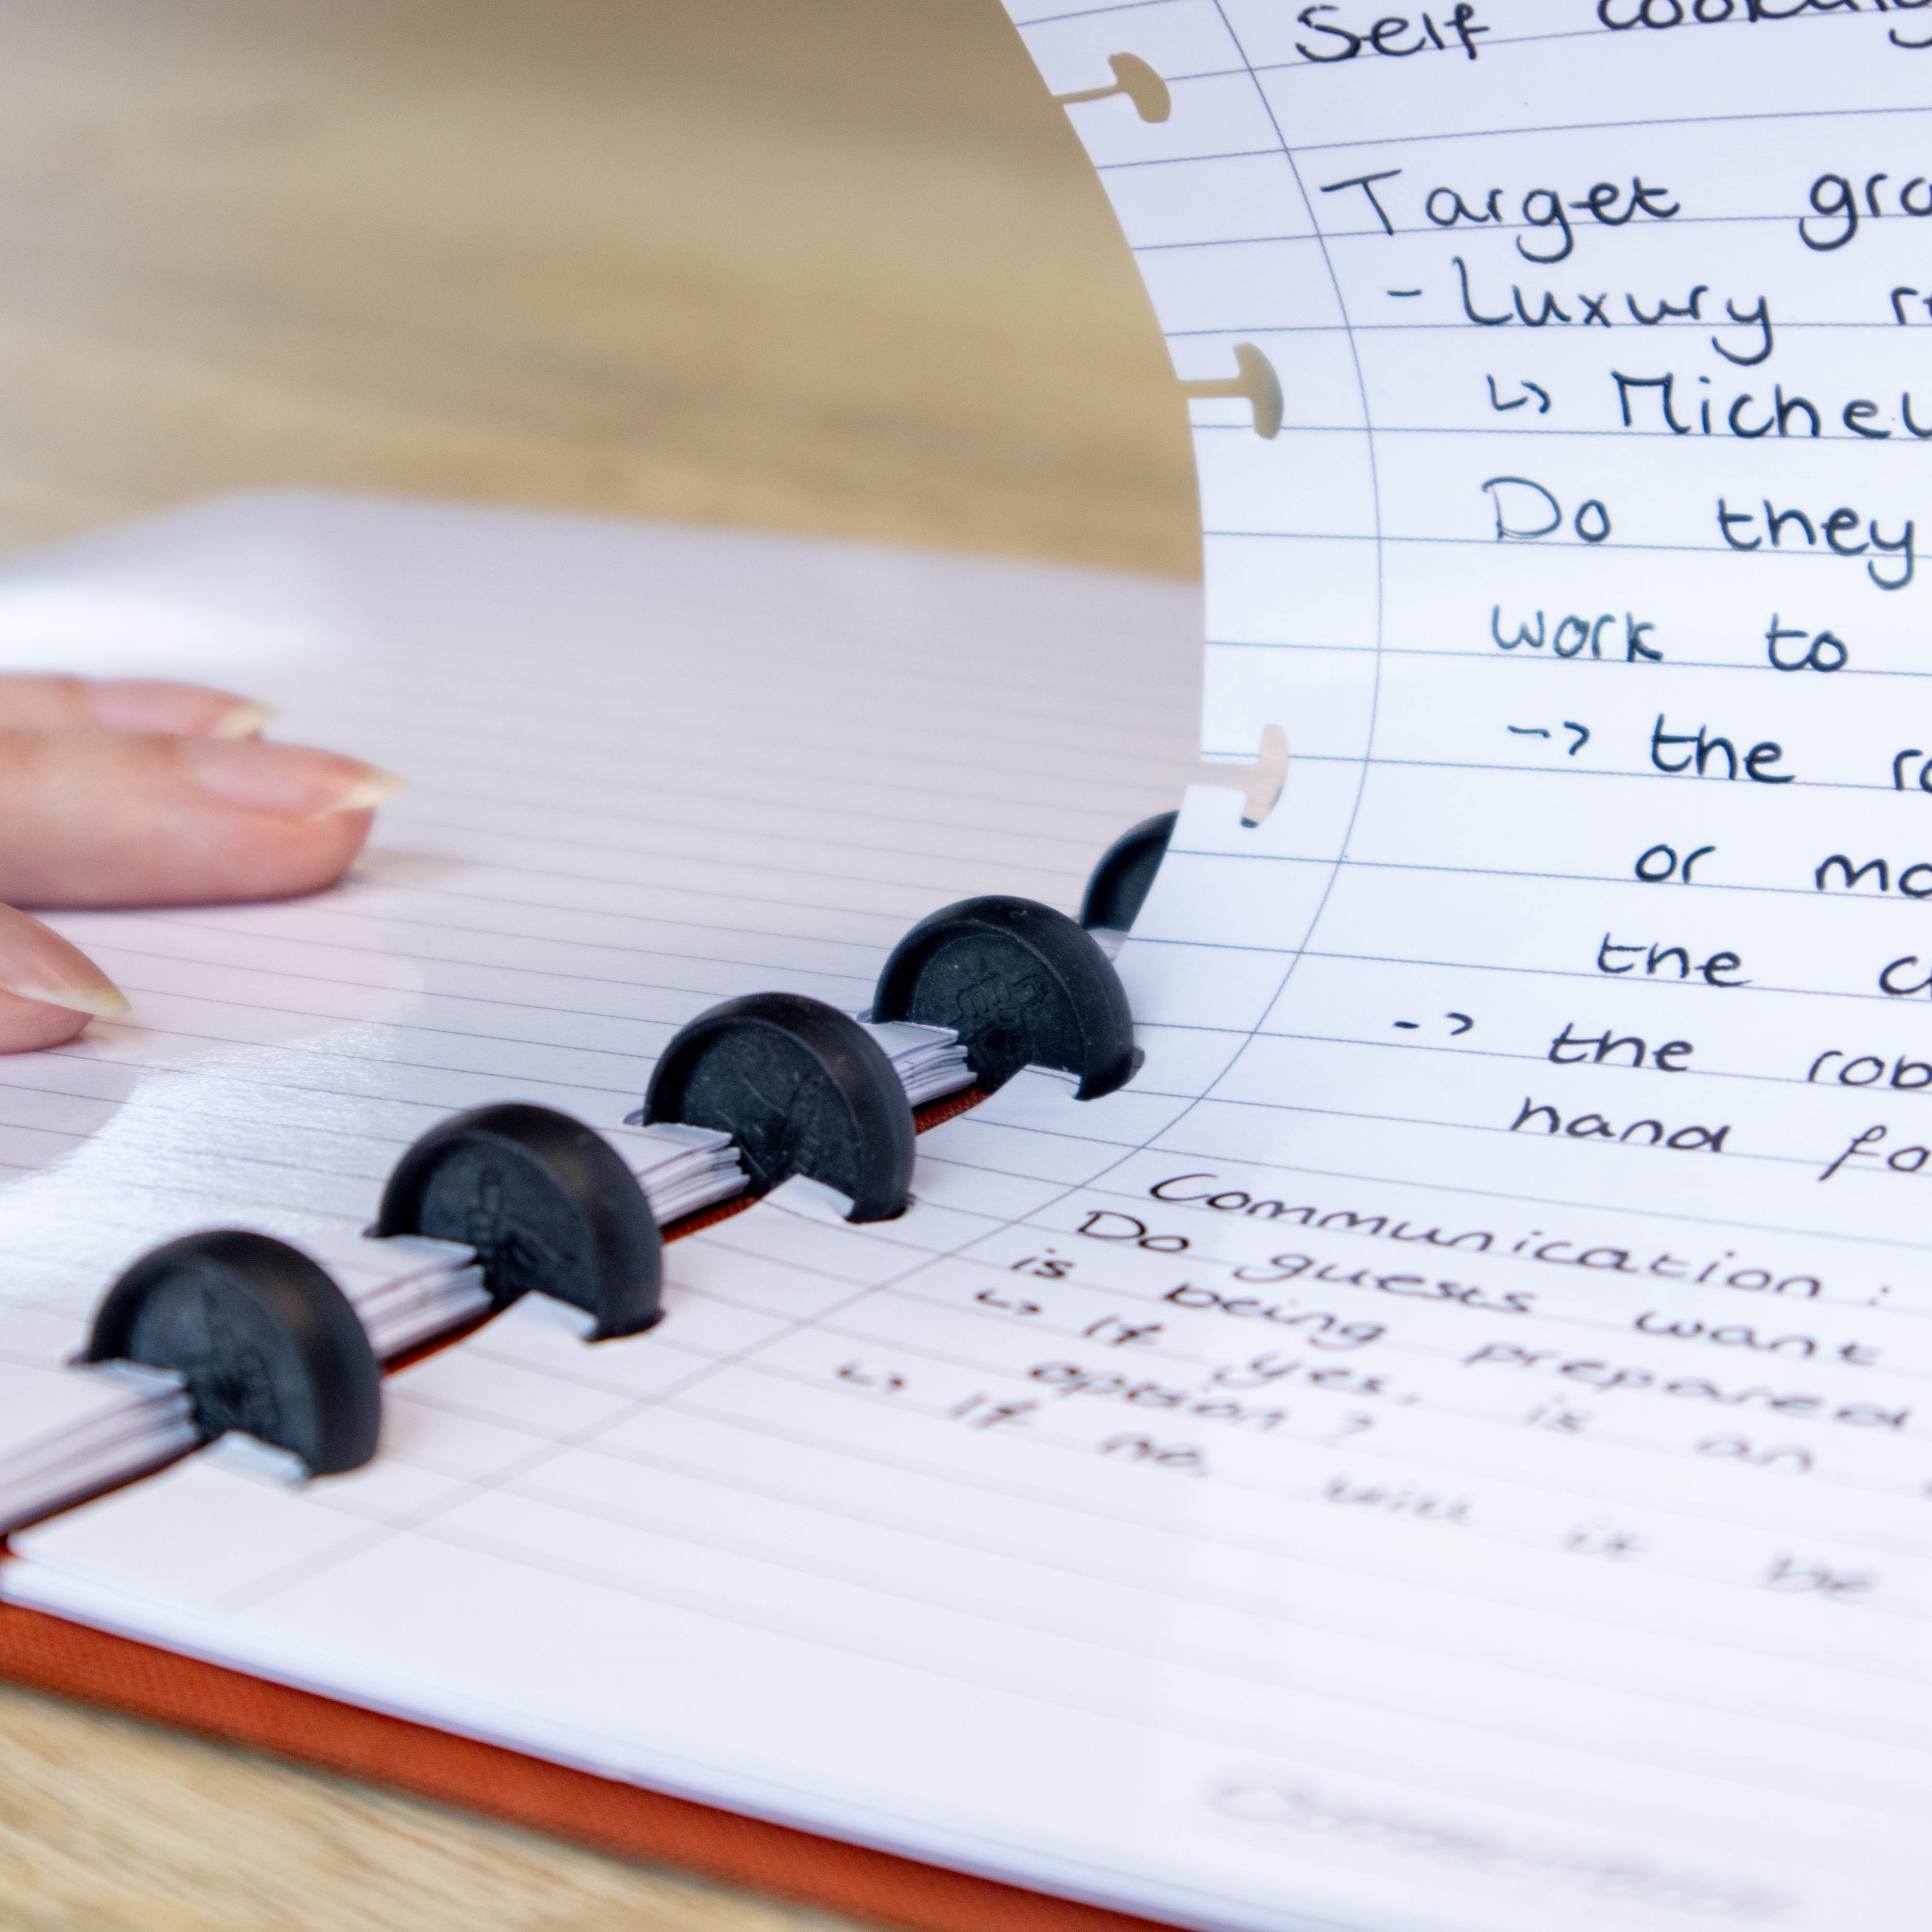 Self
Target
- Luxury
↳ Michel
Do they
work to
-> the
or
the
-> the rob
hand
Communication:
Do guests want
is being prepared
↳ If yes, is an
option?
↳ If no, will it be